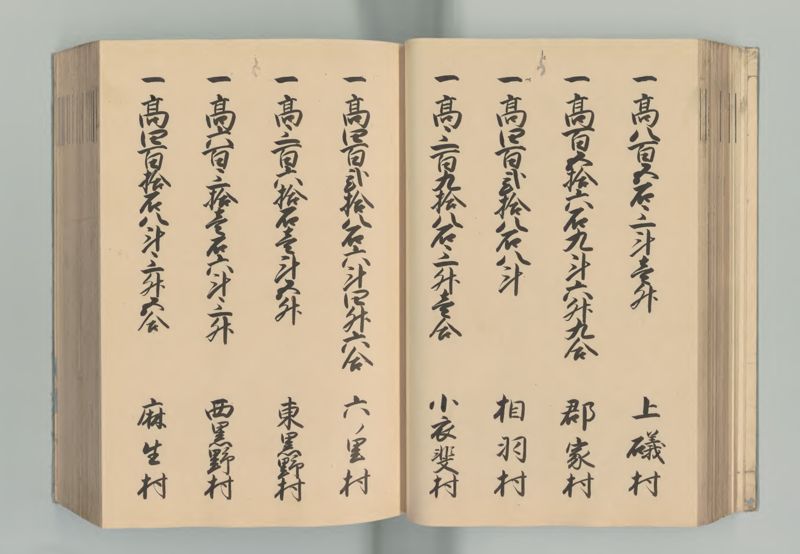 一高八百五石三斗壱升 上磯村
一高百五拾六石九斗六升九合 郡家村
一高四百弐拾八石八斗 相羽村
一高三百九拾八石三升壱合 小衣斐村
一高四百弐拾八石六斗四升六合 六ノ里村
一高三百六拾石壱斗五升 東黒野村
一高六百三拾壱石六斗三升 西黒野村
一高四百拾石八斗三升五合 麻生村